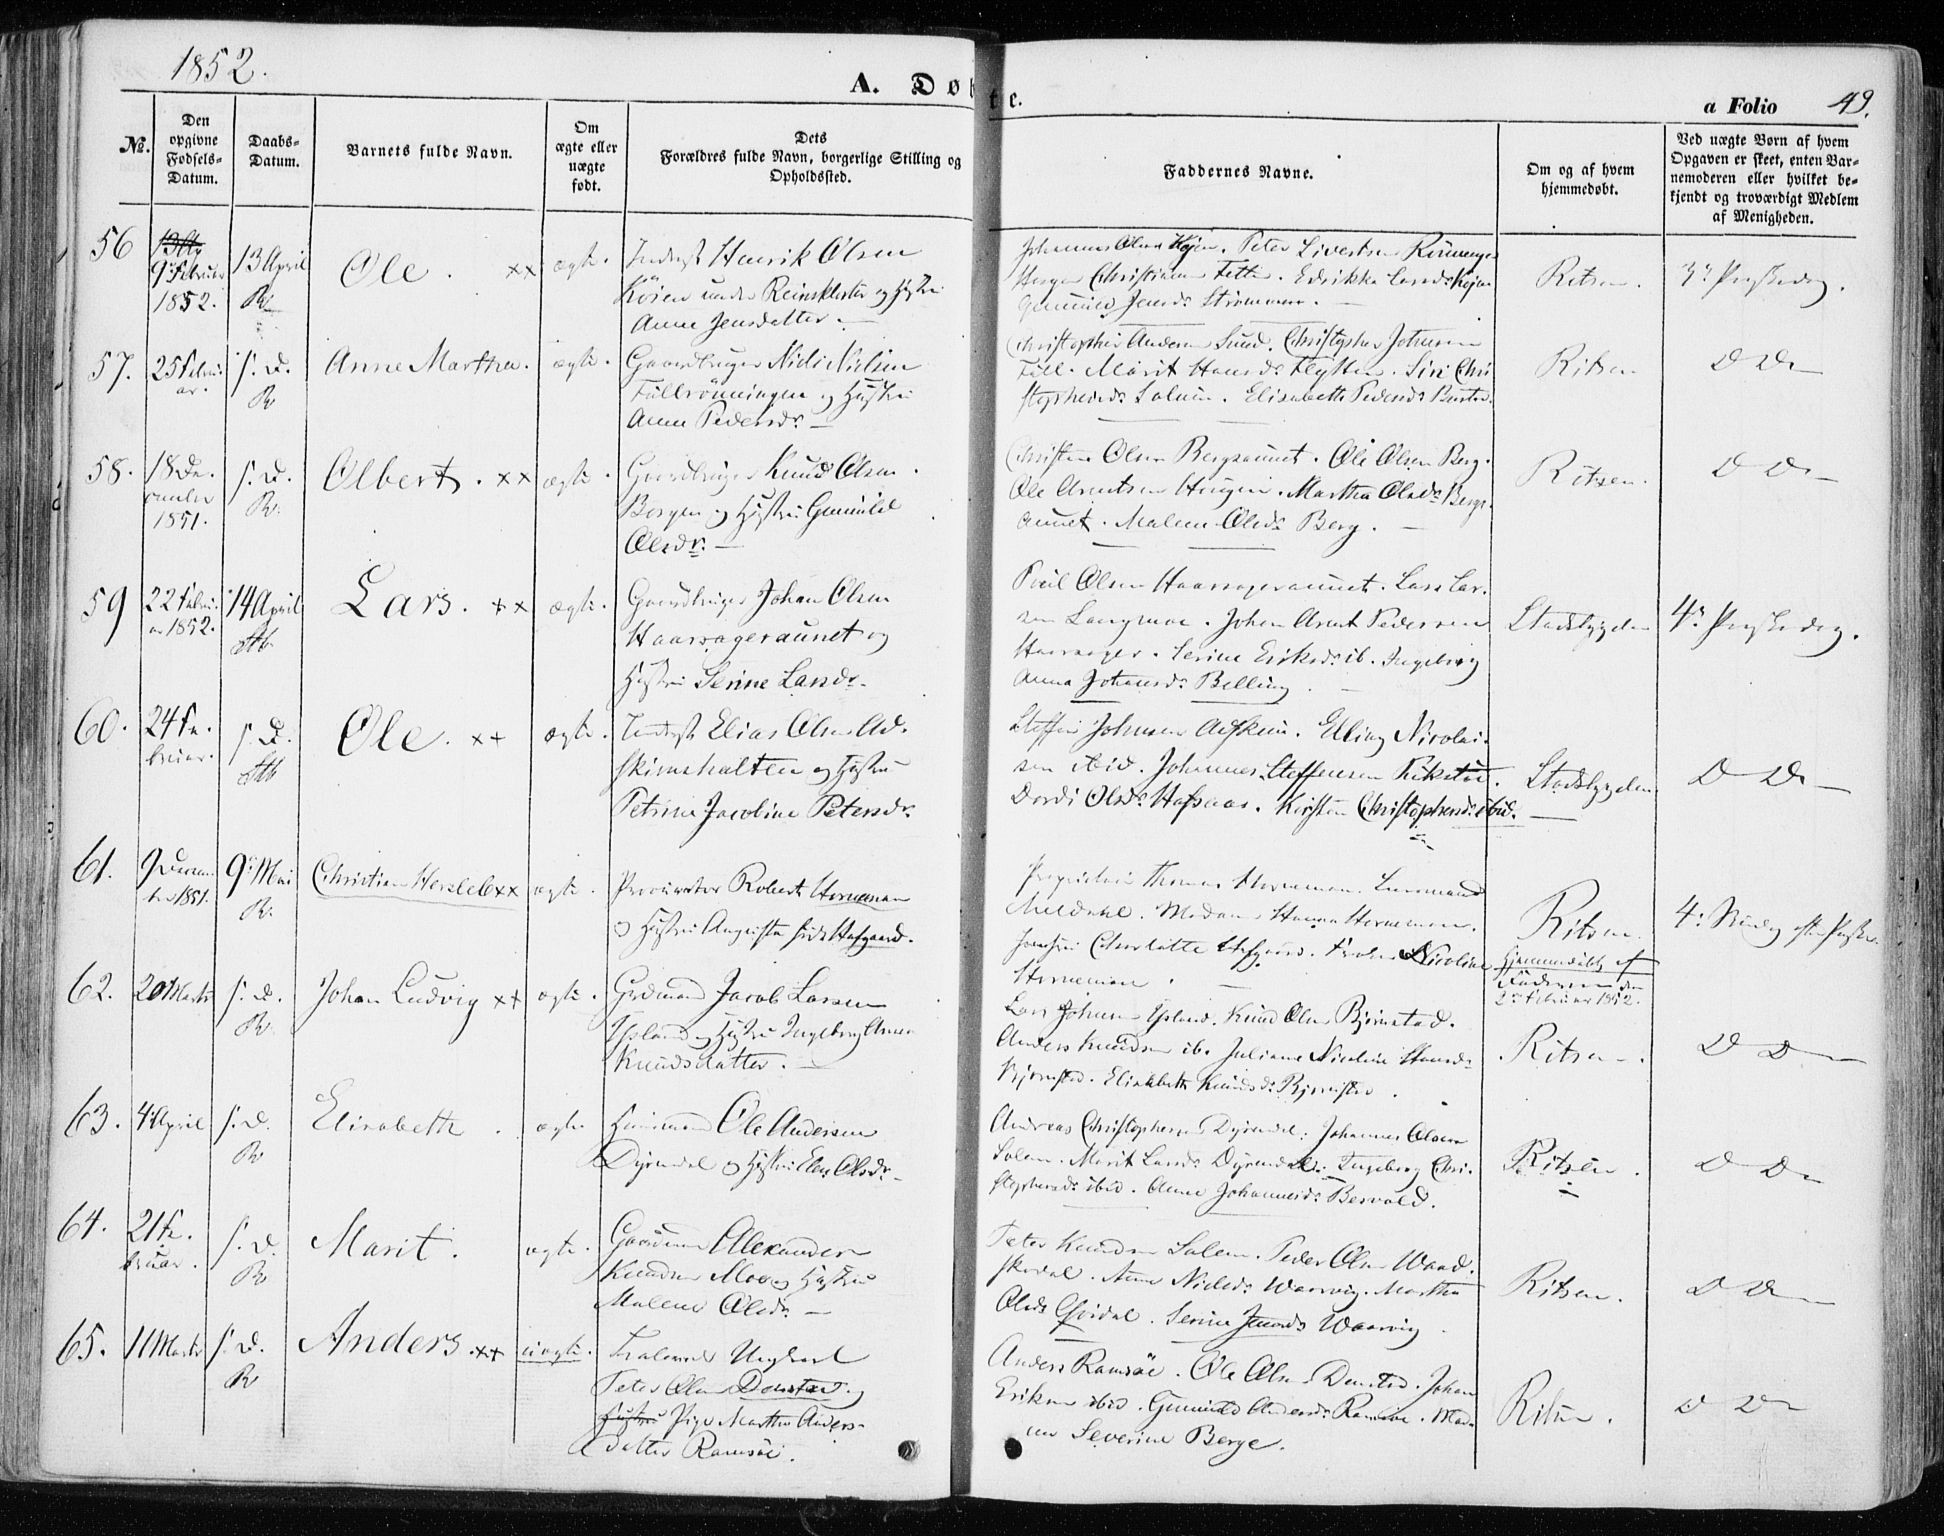 1852.
A. Døbte.
a Folio 49.
No.
Den opgivne Fødsels-Datum.
Daabs-Datum.
Barnets fulde Navn.
Om ægte eller uægte født.
Dets Forældres fulde Navn, borgerlige Stilling og Opholdssted.
Faddernes Navne.
Om og af hvem hjemmedøbt.
Ved uægte Børn af hvem Opgaven er skeet, enten Barnemoderen eller hvilket bekjendt og troværdigt Medlem af Menigheden.
56
9 Februar
1852.
13 April
R.
Ole. ××
ægte.
Henrik Olsen
Køien under Reinskloster og Hustru
Anne Jensdatter.
Johannes Olsen Køien. Peter Sivertsen
Christiansen Fette. Larsd. Køien
Gunnild Jensd. Strømmen.
Ritsen.
3 Paaskedag.
57.
25 Februar.
s. D.
R
Anne Martha.
ægte.
Gaardbruger Nils Nielsen
Fallrønningen og Hustru
Anne Pedersdr.
Christopher Andersen Sund. Christopher Johnsen
Fall. Marit Hansd. Flytten. Siri Christophersd. Solem. Elisabeth Pedersd.
Ritsen
D D
58.
18 December
1851.
s. D.
R.
Olbert. ××
ægte.
Gaardbruger Knud Olsen
Borgen og Hustru Gunnild
Olsdr.
Christen Olsen Bergsaunet. Ole Olsen Berg.
Ole Arntsen Haugen. Martha Olsdr Bergsaunet. Malene Olsdr Berg.
Ritsen.
D D
59
22 Februar 1852.
14 April
Stb
Lars. ××
ægte.
Gaardbruger Johan Olsen
Haarsageraunet og
Hustru Serine Larsdr.
Poul Olsen Haarsageraunet. Lars Larsen Langmoe. Johan Arnt Pedersen
Haarsager. Serine Eriksdr ib. Ingeborg
Anna Johansdr Belling.
Stadsbygden
4 Paaskedag.
60.
24 Februar.
s. D.
Stb
Ole. ××
ægte.
Inderst Elias Olsen Askimshalten og Hustru
Petrine Jacobine Petersdr.
Steffen Johnsen Askim. Elling Nicolaisen ibid. Johannes Steffensen Rikstad.
Dordi Olsdr Hafsaas. Kirsten Christophersdr ibid.
Stadsbygden
D D
61.
9 December 1851.
9 Mai
R.
Christian Hersleb ××
ægte.
Procurator Robert Horneman
og Hustru Augusta født Hafgaard.
Proprietair Thomas Horneman. Lensmand
Meldahl. Madam Hanna Horneman.
Jomfru Charlotte Hafgaard. Frøken Nicoline
Horneman.
Ritsen.
hjemmedøbt af
Faderen den
2 Februar 1852.
4: Søndag efter Paaske
62.
20 Marts
s. D.
R.
Johan Ludvig ××
ægte.
Jacob Larsen
Ysland og Hustru Ingeborg Anna
Knudsdatter.
Lars Johnsen Ysland. Knud Olsen Bjørnstad.
Anders Knudsen ib. Juliane Nicoline Hansdr
Bjørnstad. Elisabeth Knudsdr Bjørnstad.
Ritsen.
D D
63.
4 April
s. D.
R
Elisabeth.
ægte.
Huusmand Ole Andersen
Dyrendal og Hustru Elen Olsdr.
Andreas Christophersen Dyrendal. Johannes Olsen
Solem. Marit Larsdr Dyrendal. Ingeborg Christophersdr ibid. Anne Johannesdr Bervald.
Ritsen.
D D
64.
21 Februar.
s. D.
R
Marit.
ægte.
Gaardmand Alexander
Knudsen Moe og Hustru
Malene Olsdr
Peter Knudsen Solem. Peder Olsen Waadskedal. Anne Nielsdr Waarvig. Martha
Olsdr Qvidal. Serine Jensdr Waarvig.
Ritsen.
D D
65.
11 Marts
s. D.
R
Anders. ××
uægte.
Ungkarl
Peter Olsen Denstad og
Hustru Pige Martha Andersdatter Ramsøe.
Anders Ramsøe. Ole Olsen Denstad. Johan
Eriksen ibid. Gunnild Andersdr Ramsøe. Madam Severine Berge.
Ritsen.
D D